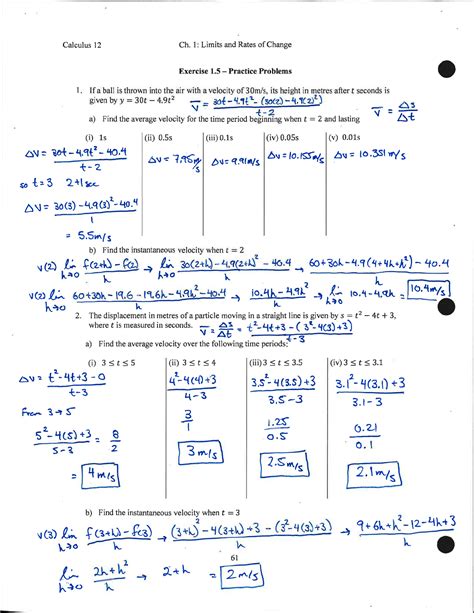 Calculus 12 Ch. 1: Limits and Rates of Change
Exercise 1.5 – Practice Problems
1. If a ball is thrown into the air with a velocity of 30m/s, its height in metres after t seconds is
given by y = 30t − 4.9t² v̄ = 30t-4.9t² - (30(2)-4.9(2)²) / t-2
a) Find the average velocity for the time period beginning when t = 2 and lasting v̄ = Δs/Δt
(i) 1s (ii) 0.5s (iii) 0.1s (iv) 0.05s (v) 0.01s
ΔV = 30t-4.9t²-40.4 / t-2 ΔV = 7.95m/s ΔV = 9.91m/s ΔV = 10.155m/s ΔV = 10.351m/s
so t=3 2+1sec
ΔV = 30(3)-4.9(3)²-40.4 / 1
= 5.5m/s
b) Find the instantaneous velocity when t = 2
v(2) lim h→0 f(2+h)-f(2) / h → lim h→0 30(2+h)-4.9(2+h)²-40.4 / h → 60+30h-4.9(4+4h+h²)-40.4 / h
v(2) lim h→0 60+30h-19.6-19.6h-4.9h²-40.4 / h → 10.4h-4.9h² / h → lim h→0 10.4-4.9h = 10.4m/s
2. The displacement in metres of a particle moving in a straight line is given by s = t² − 4t + 3,
where t is measured in seconds. v̄ = Δs/Δt = t²-4t+3-(3²-4(3)+3) / t-3
a) Find the average velocity over the following time periods:
(i) 3 ≤ t ≤ 5 (ii) 3 ≤ t ≤ 4 (iii) 3 ≤ t ≤ 3.5 (iv) 3 ≤ t ≤ 3.1
ΔV = t²-4t+3-0 / t-3 4²-4(4)+3 / 4-3 3.5²-4(3.5)+3 / 3.5-3 3.1²-4(3.1)+3 / 3.1-3
From 3→5 3/1 1.25/0.5 0.21/0.1
5²-4(5)+3 / 5-3 = 8/2 3m/s 2.5m/s 2.1m/s
= 4m/s
b) Find the instantaneous velocity when t = 3
v(3) lim h→0 f(3+h)-f(3) / h → (3+h)²-4(3+h)+3-(3²-4(3)+3) / h → 9+6h+h²-12-4h+3 / h
61
lim h→0 2h+h² / h → 2+h = 2m/s